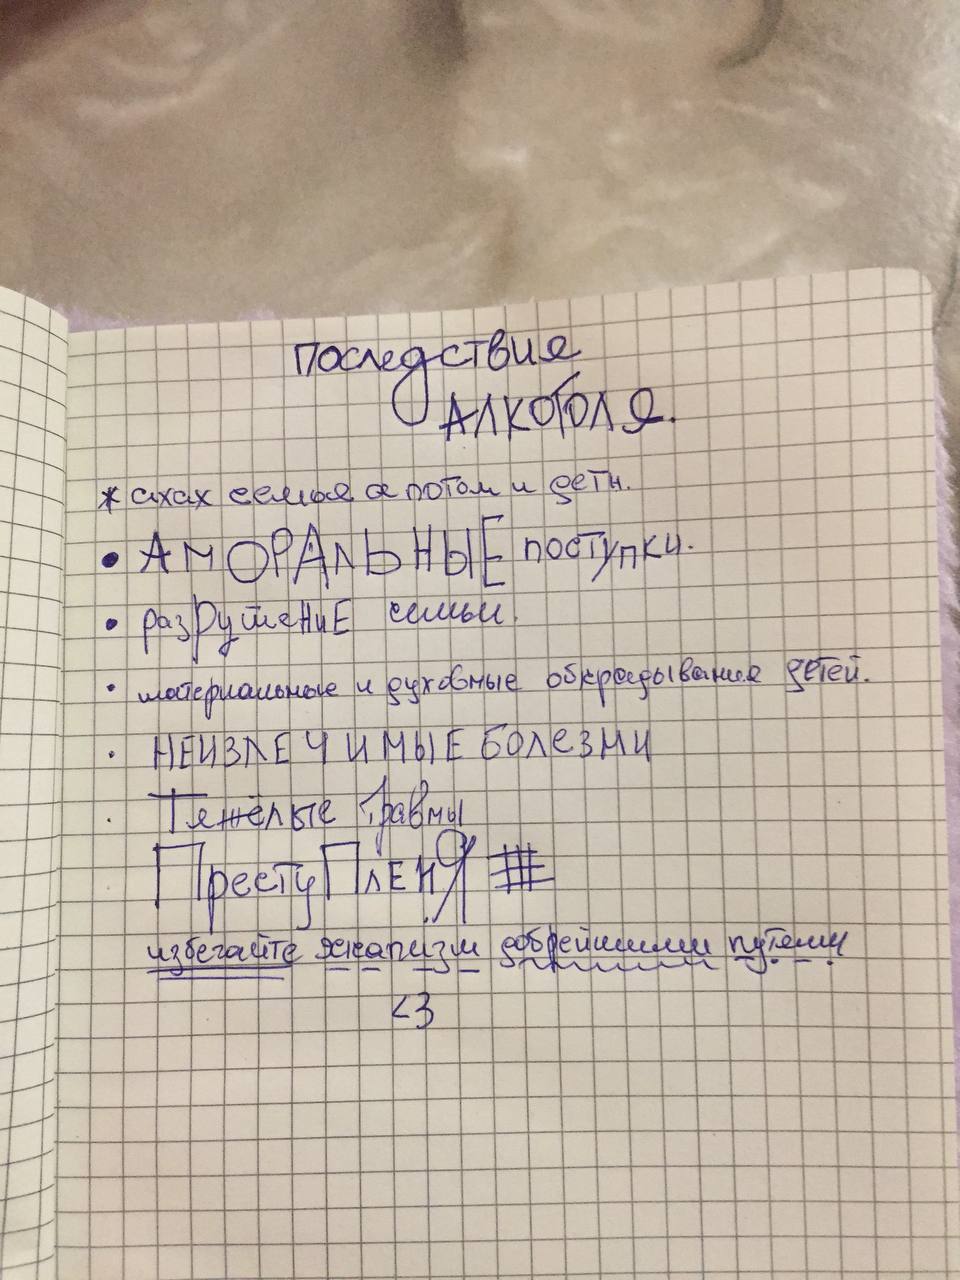 последствия
АЛКОГОЛЯ.
* ахах семья а потом и дети.
• АМОРАЛЬНЫЕ поступки.
• разРушеНиЕ семьи.
• материальные и духовные обкрадывание детей.
• НЕИЗЛЕЧИМЫЕ БОЛЕЗНИ
• Тяжёлые Травмы
ПрестуПленЯ #
избегайте эскапизм добрейшими путями
<3